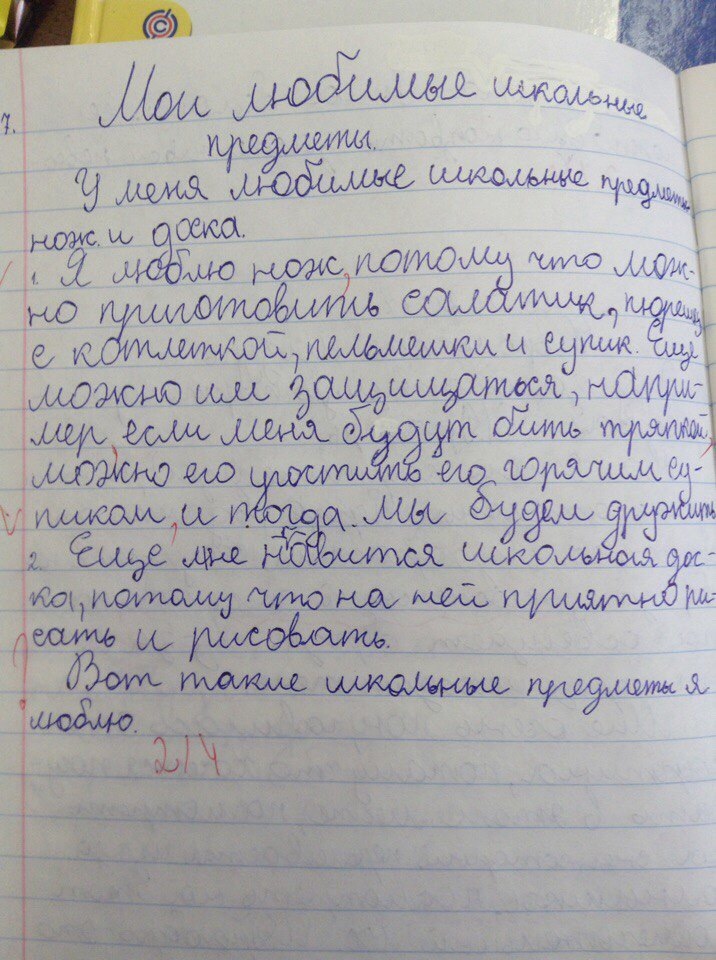 7. Мои любимые школьные
предметы.
У меня любимые школьные предметы
нож и доска.
1. Я люблю нож, потому что мож-
но приготовить салатик, пюрешку
с котлеткой, пельмешки и супик. Еще
можно им защищаться, напри-
мер, если меня будут бить тряпкой,
можно его угостить его горячим су-
пиком, и тогда мы будем дружить
2. Еще мне нравится школьная дос-
ка, потому что на ней приятно пи-
сать и рисовать.
Вот такие школьные предметы я
люблю.
2/4